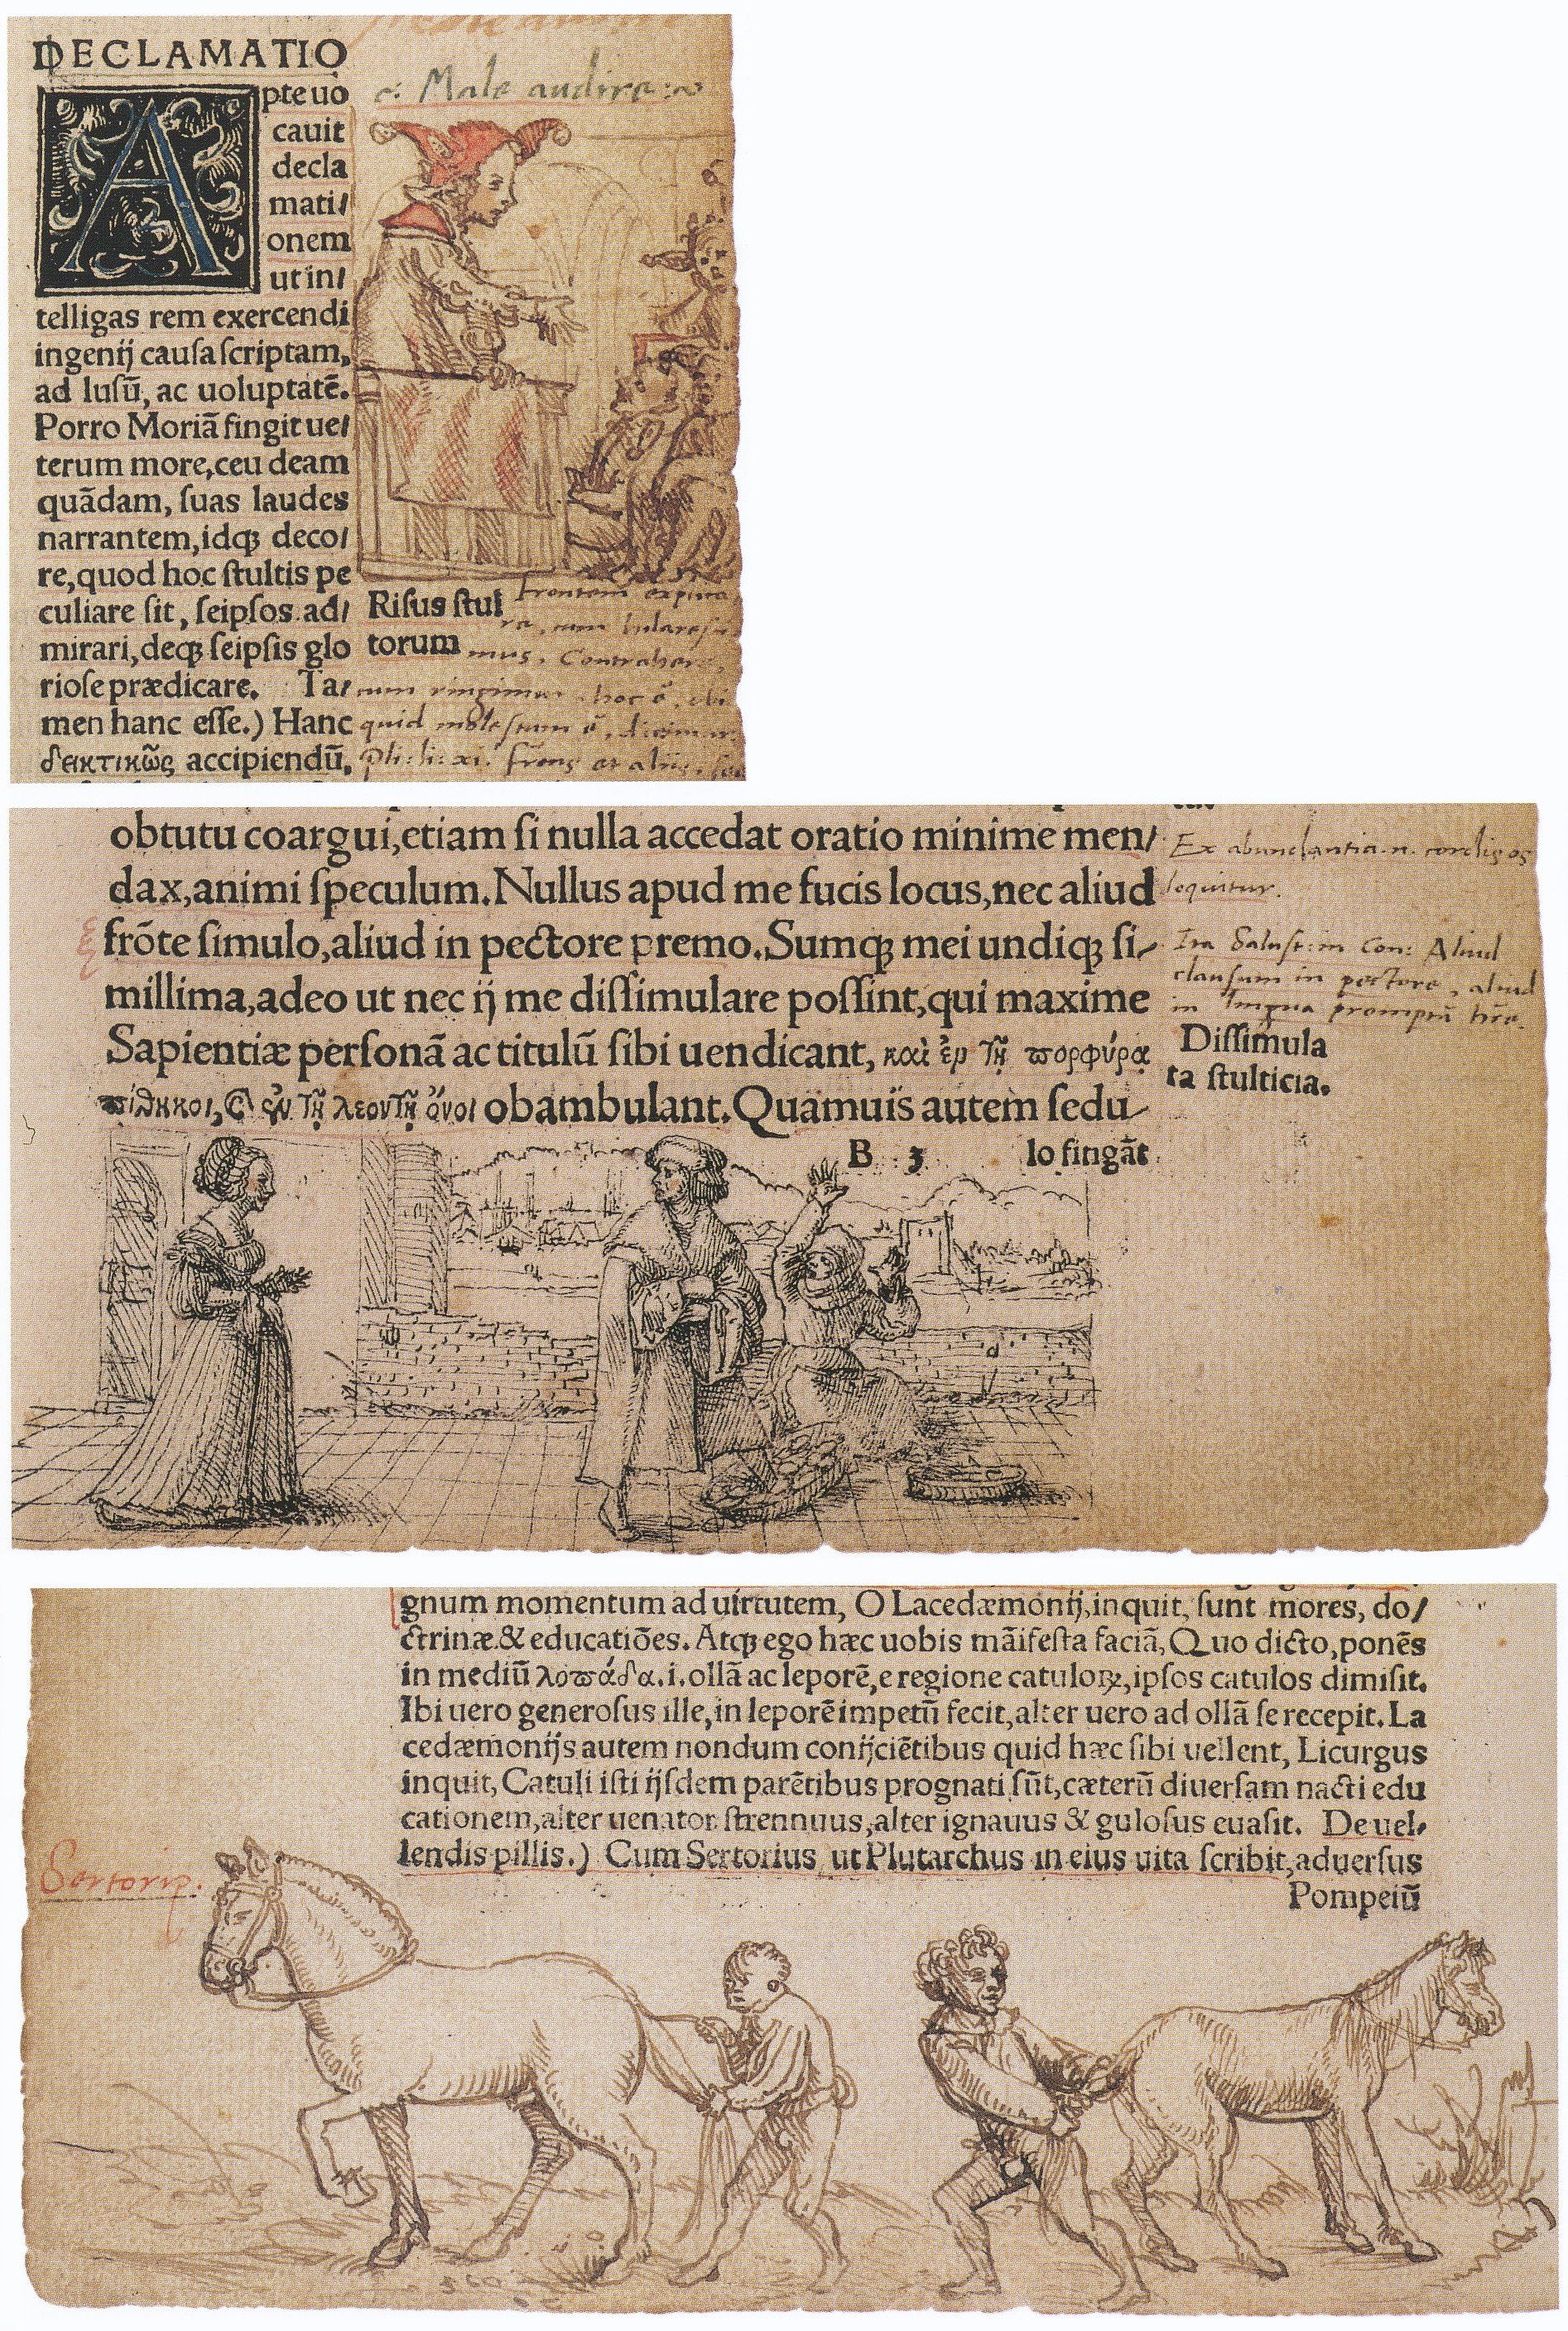 DECLAMATIO
Apteuo
cauit
decla
mati/
onem
ut in/
telligas rem exercendi
ingenij cauſa ſcriptam,
ad luſū, ac uoluptatē.
Porro Moriā fingit ue/
terum more, ceu deam
quādam, ſuas laudes
narrantem, idq; deco/
re, quod hoc ſtultis pe
culiare ſit, ſeipſos ad/
mirari, deq; ſeipſis glo
rioſe prædicare. Ta/
men hanc eſſe.) Hanc
δεικτικῶς accipiendū,
Male audire
Riſus ſtul
torum
Frontem
mus. Contrahere,
cum ringimur hoc ē, ubi
quid moleſtum ē,
Pli: li: xi. Frons et aliis
obtutu coargui, etiam ſi nulla accedat oratio minime men/
dax, animi ſpeculum. Nullus apud me fucis locus, nec aliud
frōte ſimulo, aliud in pectore premo. Sumq; mei undiq; ſi/
millima, adeo ut nec ij me diſſimulare poſſint, qui maxime
Sapientiæ perſonā ac titulū ſibi uendicant, καὶ ἐν τῇ πορφύρᾳ
πίθηκοι, & ἐν τῇ λεοντῇ ὄνοι obambulant. Quamuis autem ſedu/
B 3 lo fingāt
Ex abundantia .n. cordis os
loquitur.
Ita Saluſt: in Con: Aliud
clauſum in pectore, aliud
in lingua promptū
Diſſimula
ta ſtulticia.
gnum momentum ad uirtutem, O Lacedæmonij, inquit, ſunt mores, do/
ctrinæ & educatiōes. Atq; ego hæc uobis māifeſta faciā, Quo dicto, ponēs
in mediū λοπάδα .i. ollā ac leporē, e regione catuloꝝ, ipſos catulos dimiſit.
Ibi uero generoſus ille, in leporē impetū fecit, alter uero ad ollā ſe recepit. La
cedæmonijs autem nondum conijciētibus quid hæc ſibi uellent, Licurgus
inquit, Catuli iſti ijſdem parētibus prognati ſūt, cæterū diuerſam nacti edu
cationem, alter uenator ſtrennuus, alter ignauus & guloſus euaſit. De uel/
lendis pillis.) Cum Sertorius, ut Plutarchus in eius uita ſcribit, aduerſus
Pompeiū